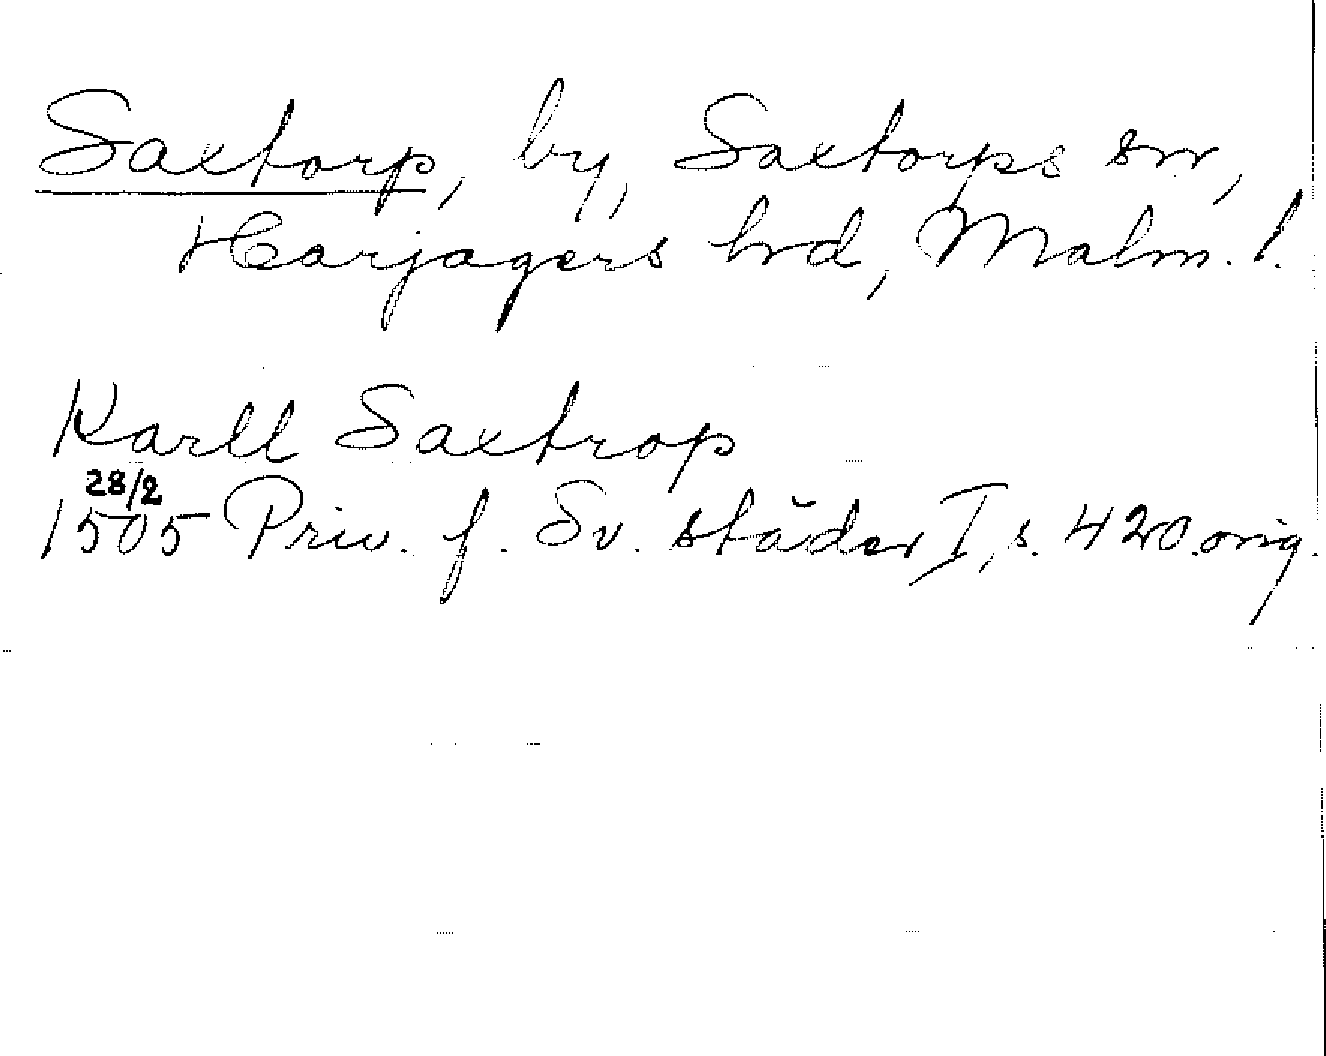 Saxtorp, by, Saxtorps sn,
Harjagers hrd, Malm. l.
Karll Saxtrop
28/2
1505 Priv. f. Sv. städer I, s. 420. orig.